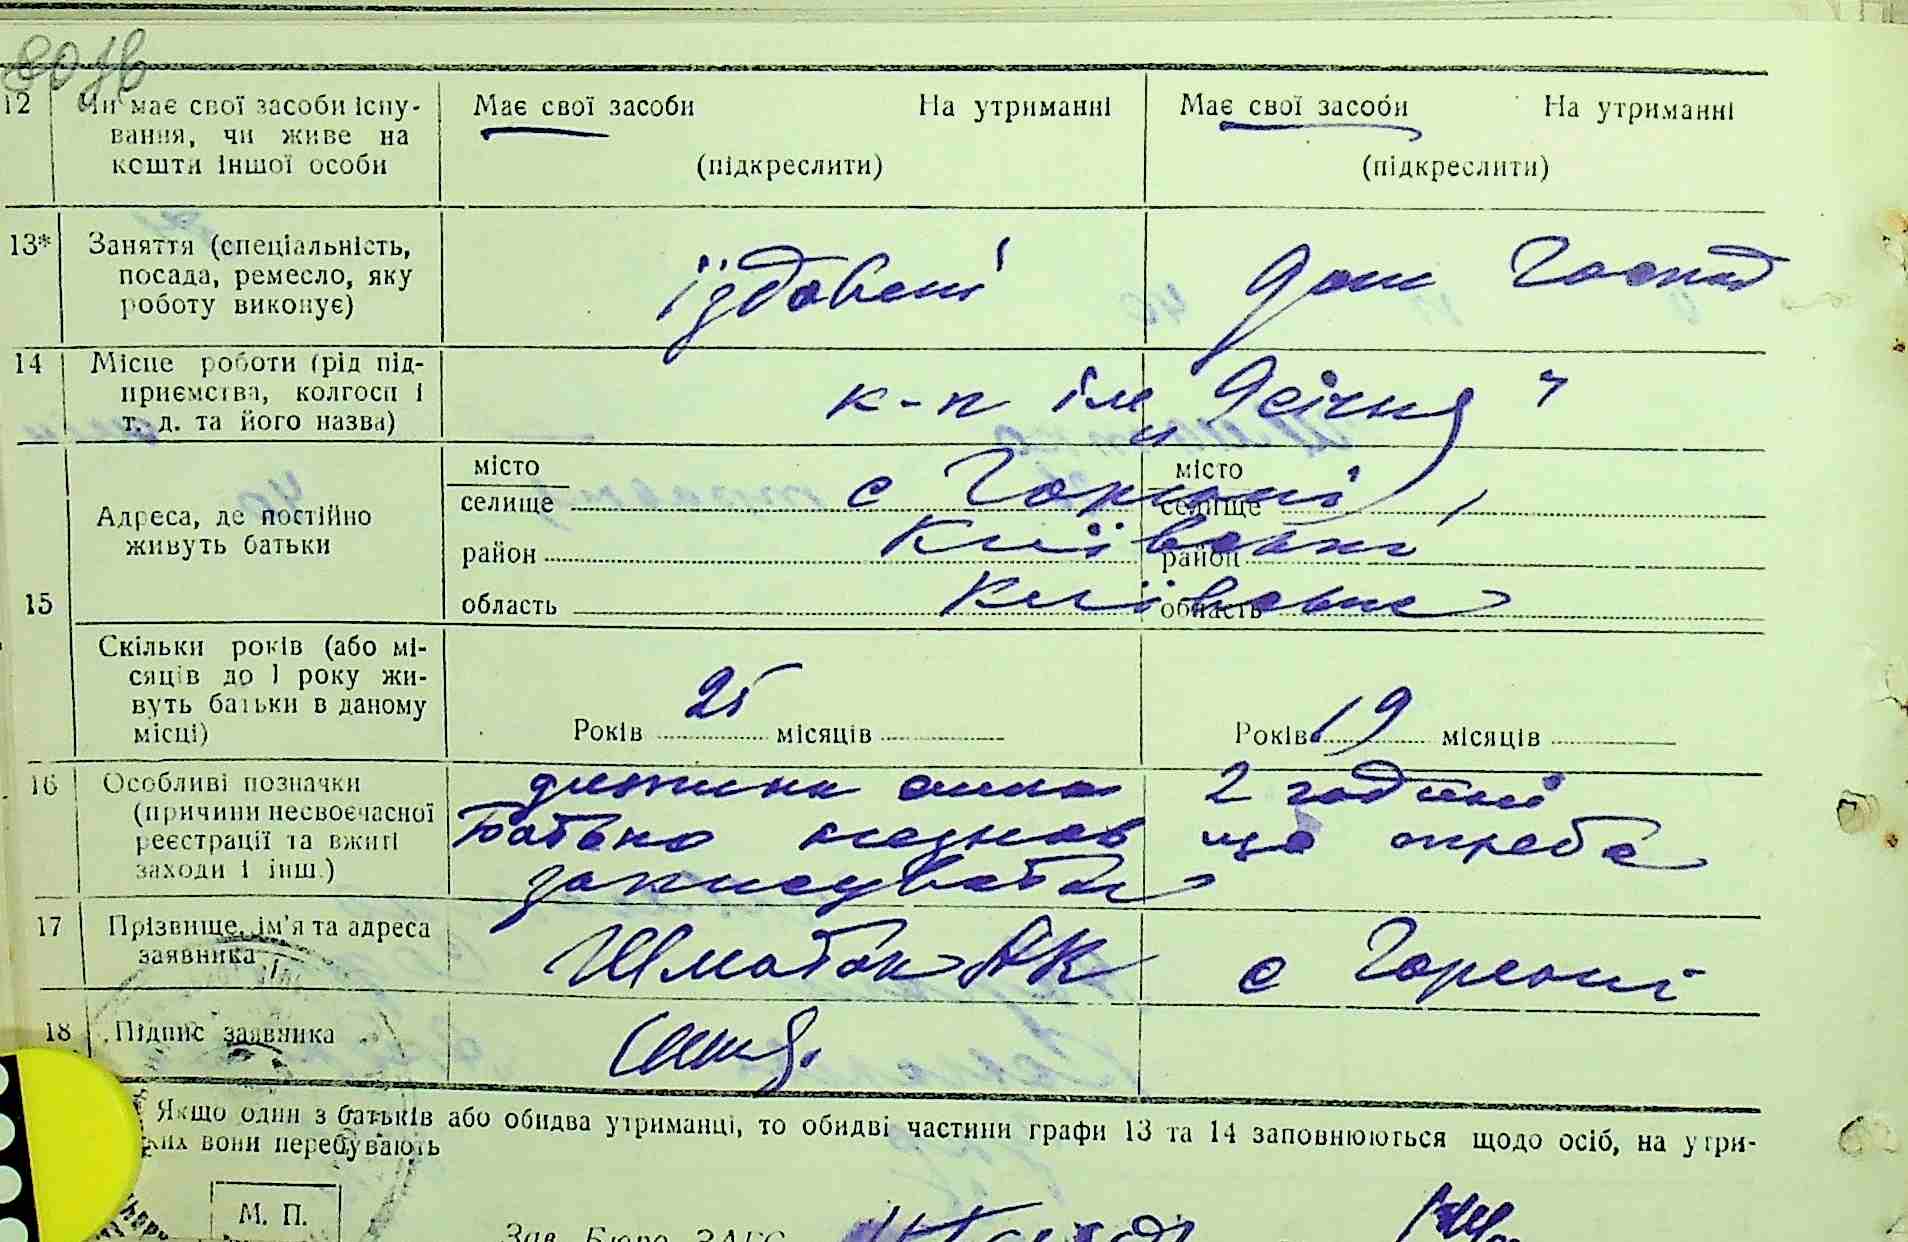 12 Чи має свої засоби існу- Має свої засоби На утриманні Має свої засоби На утриманні
вання, чи живе на
кошти іншої особи (підкреслити) (підкреслити)
13* Заняття (спеціальність,
посада, ремесло, яку їздовий дом господ
роботу виконує)
14 Місце роботи (рід під-
приємства, колгосп і к-п ім 9 січня "
т. д. та його назва)
місто місто
селище с Горені, селище
Адреса, де постійно
живуть батьки район Київський район
15 область Київська область
Скільки років (або мі-
сяців до 1 року жи-
вуть батьки в даному
місці) Років 25 місяців Років 19 місяців
16 Особливі позначки дитина жила 2 години
(причини несвоєчасної батько незнав що треба
реєстрації та вжиті записувати
заходи і інш.)
17 Прізвище, ім'я та адреса Шматок АК с Горені
заявника
18 Підпис заявника
Якщо один з батьків або обидва утриманці, то обидві частини графи 13 та 14 заповнюються щодо осіб, на утри-
ких вони перебувають
М. П.
Зав. Бюро ЗАГС